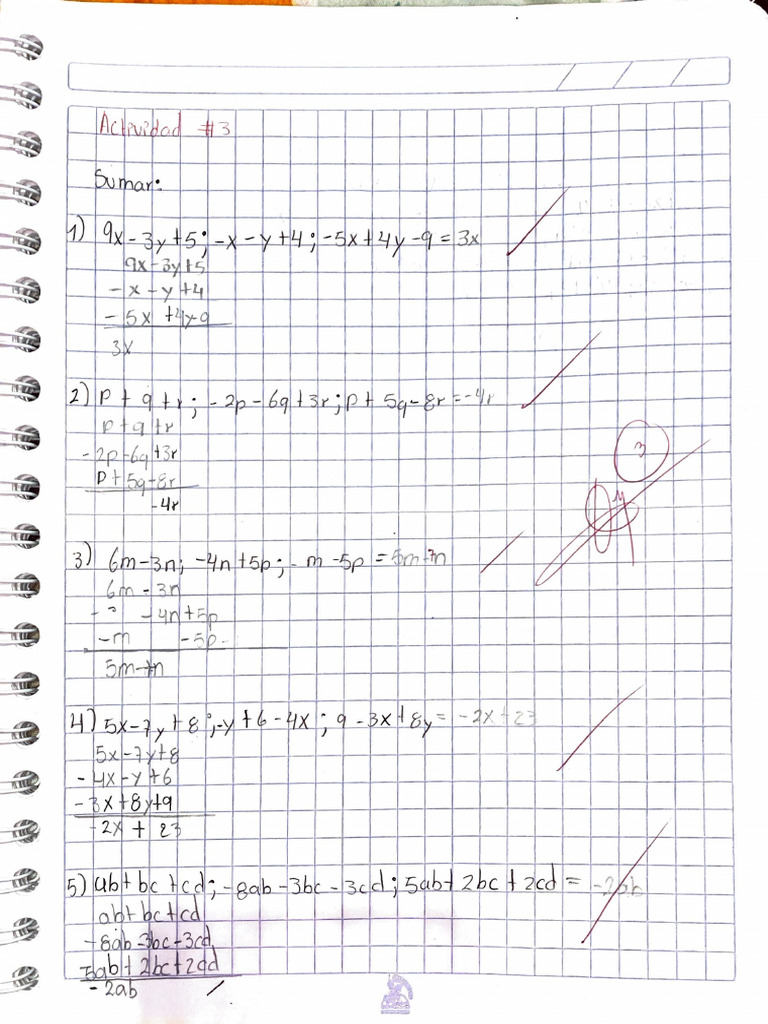 Actividad #3
Sumar:
1) 9x - 3y + 5 ; -x - y + 4 ; -5x + 4y - 9 = 3x
9x - 3y + 5
- x - y + 4
- 5x + 4y - 9
3x
2) p + q + r ; - 2p - 6q + 3r ; p + 5q - 8r = -4r
p + q + r
- 2p - 6q + 3r
p + 5q - 8r
-4r
3) 6m - 3n ; -4n + 5p ; - m - 5p = 5m - 7n
6m - 3n
- 4n + 5p
- m - 5p
5m - 7n
3
4) 5x - 7y + 8 ; -y + 6 - 4x ; 9 - 3x + 8y = -2x + 23
5x - 7y + 8
- 4x - y + 6
- 3x + 8y + 9
- 2x + 23
5) ab + bc + cd ; - 8ab - 3bc - 3cd ; 5ab + 2bc + 2cd = -2ab
ab + bc + cd
- 8ab - 3bc - 3cd
5ab + 2bc + 2cd
- 2ab